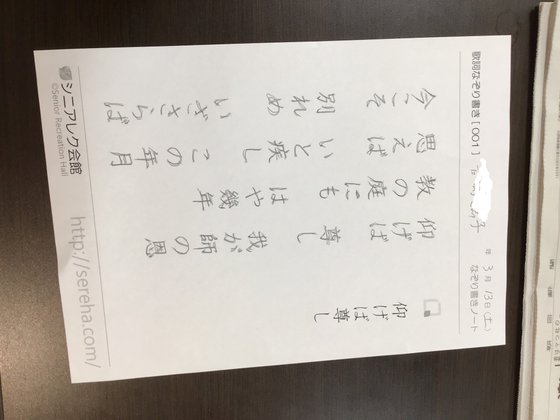 歌詞なぞり書き [001]
子
年 3月 13日 (土)
なぞり書きノート
仰げば尊し
仰げば 尊し 我が師の恩
教の庭にも はや幾年
思えば いと疾し この年月
今こそ 別れめ いざさらば
シニアレク会館
©Senior Recreation Hall
http://sereha.com/